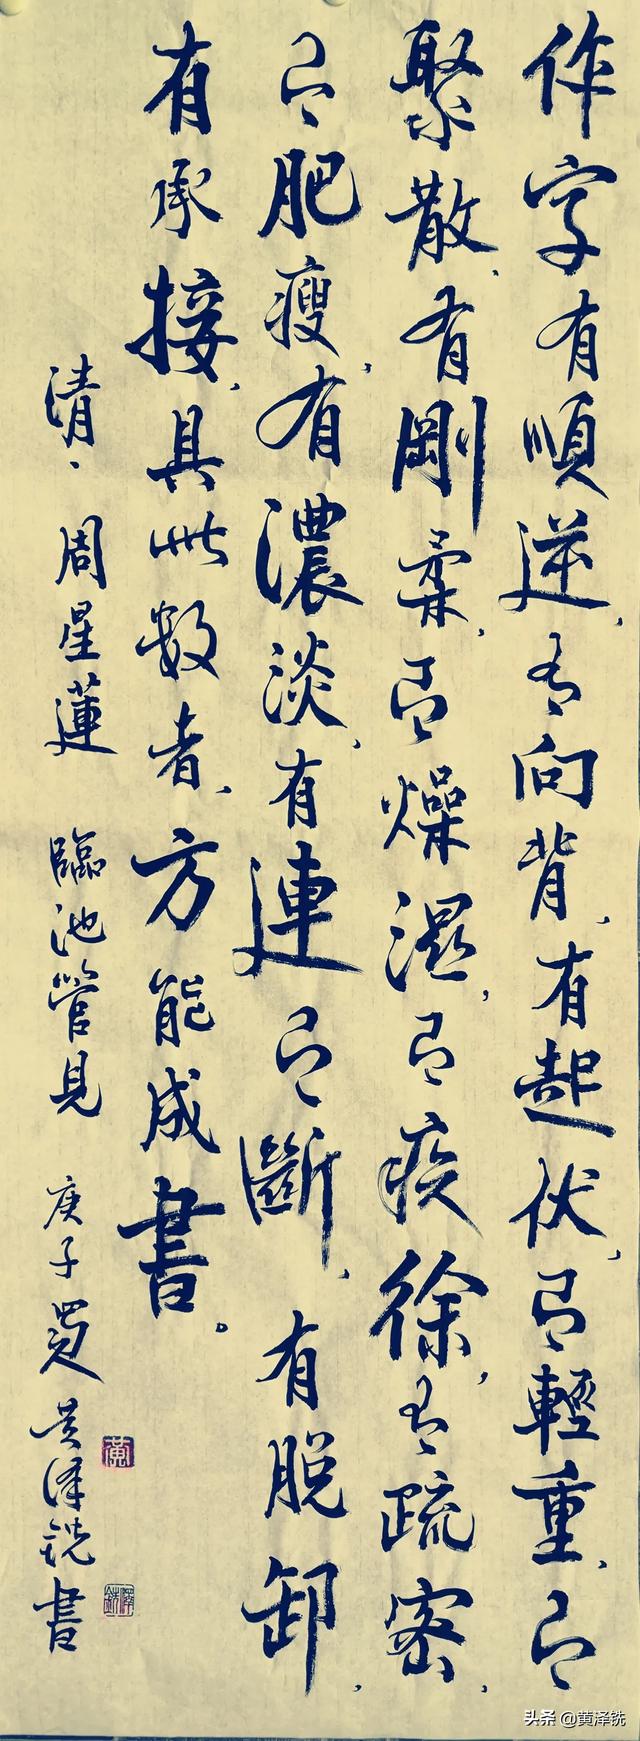 作字有順逆，有向背，有起伏，有輕重、有
聚散，有剛柔，有燥湿，有疾徐，有疏密，
有肥瘦，有濃淡，有連有斷，有脱卸，
有承接，具此數者、方能成書。
清、周星蓮 臨池管見 庚子夏 黄泽铣書
黄
头条 @黄泽铣